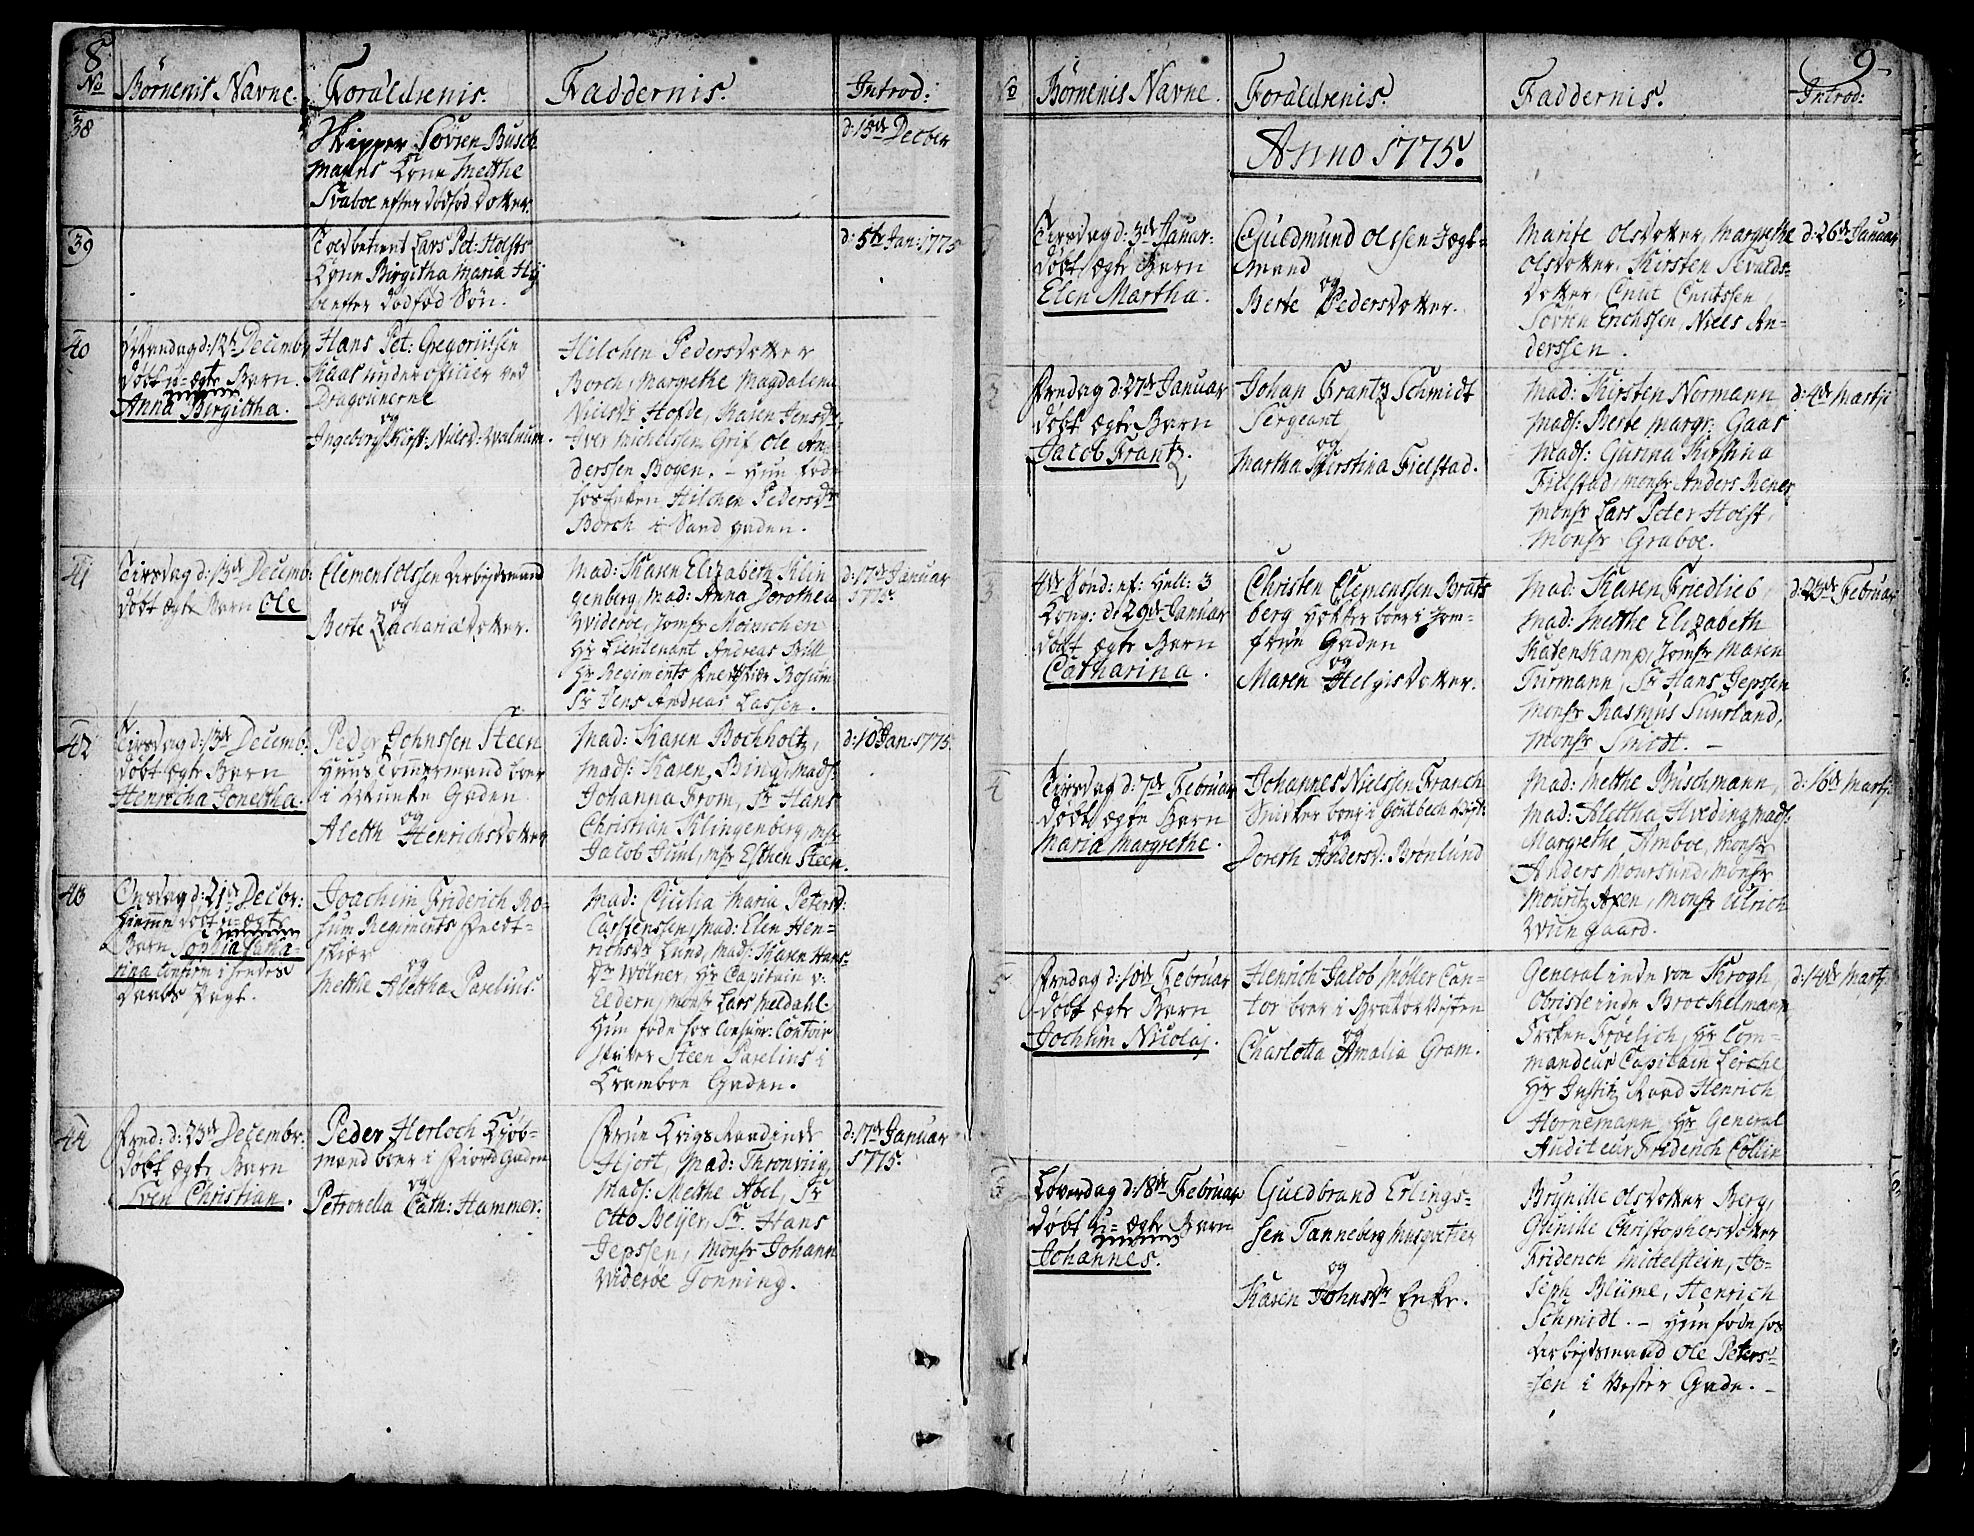 8.
No Børnenis Navne. Foraldrenis. Faddernis. Introd:
38
Skipper Søvren Busch
manns Kone Metthe
Svaboe efter dødfød Dotter.
d: 15de Decber
39
Toldbetient Lars Pet: Holsts
Kone Birgitha Maria Hÿ
efter dødfød Søn.
d: 5te Jan: 1775
40
d: 12te Decembr
døbt u-ægte Barn.
Anna Birgittha.
Hans Pet: Gregoriussen
Kaas underofficier ved
Dragounerne
og
Ingeborg Kirst: Nielsd: Walnum.
Hilchen Pedersdotter
Borch, Margrethe Magdalena
Nielsdr Hofde, Karen Jensdr
Iver Michelssen Grif Ole An-
derssen Bogen. - Hun føde
hos Enken Hilchen Pedersdr
Borch i Sand gaden.
41
Tirsdag d: 13de Decemb:
døbt ægte Barn Ole
Clement Olssen Arbejdsmand
og
Berte Zachariædotter.
Mad: Karen Elizabeth Klin
genberg, Mad: Anna Dorothea
Widerøe, Jomfr Meinichen
Hr Lieutenant Andreas Bull
Hr Regiments Feldtskiær Bosum
Sr Jens Andreas Lassen.
d: 17de Januar
1775.
42
Tirsdag d: 13de Decemb.
døbt ægte Barn
Henricha Jonetha.
Peder Johnssen Steen
Huustømmermand boer
i Gaden
og
Aletth Henrichsdotter
Mad: Karen Bochholtz,
Mads: Karen Bing, Mads:
Johanna From, Sr Hans
Christian Klingenberg, Msr
Jacob Juul, Msr Esthen Steen.
d: 10 Jan: 1775.
43
Onsdag d: 21de Decbr:
hiemme døbt u-ægte
Barn Sophia Catha-
rina Confirm i hendes
daabs Pagt.
Joachim Friderich Bo-
sum Regiments Feldt-
skiær
og
Metthe Alettha Paselius.
Mad: Cicilia Maria Petersd:
Carstenssen, Mad: Elen Hen-
richsdr Lund, Mads: Karen Hans-
dr Wølner, Hr Capitain v:
Eldern, Monsr Lars Meldahl:
Hun føde hos Consum: Contoir
skriver Steen Paselius i
Kramboe Gaden.
44
Fred: d: 23de Decembr:
døbt ægte Barn
Sven Christian.
Peder Herloch Kjøb-
mand boer i Fiord Gaden
og
Petronella Cath: Hammer:
Frue Krigs Raadinde
Hjort, Mad: Thronviig,
Mads: Metthe Abel, Sr
Otto Beÿer, Sr. Hans
Jepssen, Monsr Johann
Widerøe Tonning.
d: 17de Januar
1775.
9.
No Børnenis Navne. Foraldrenis. Faddernis. Introd:
Anno 1775.
1
Tirsdag d: 3de Januar:
døbt ægte Barn
Elen Martha.
Guldmund Olssen Jægt-
mand
og
Berte Pedersdotter.
Marite Olsdotter, Margrethe
Olsdotter, Kirsten Sevalds-
dotter, Cnut Cnutssen
Sövren Erichssen, Niels An-
derssen.
d: 26de Januar
2
Fredag d: 27de Januar
døbt ægte Barn
Jacob Frantz.
Johan Frantz Schmidt
Sergeant
og
Martha Kirstina Fielstad.
Mad: Kirsten Normann
Mads: Berte Margr: Gaas
Mads: Gurina Kirstina
Fielstad, Monsr Anders Rener
Monsr Lars Peter Holst,
Monsr Graboe.
d: 4de Martsi
3
4de Sønd: ef: Hell: 3
Kong: d: 29de Januar
døbt ægte Barn
Catharina.
Christen Clemenssen Brats
berg Høkker boer i Jom-
frue Gaden
og
Maren Helgisdotter.
Mad: Karen Friedlieb,
Mad: Metthe Elizabeth
KatenKamp, Jomfr Maren
Turmann, Sr Hans Jepssen
Monsr Rasmus Suurland,
Monsr Smidt. -
d: 23de Februar
4
Tirsdag d: 7de Februar
døbt ægte Barn
Maria Margrethe.
Johannes Nielssen Franch
Snidker boer i
og
Doreth Andersd: Brønlund
Mad: Metthe Buschmann,
Mad: Alettha Hveding Mads:
Margrethe Amboe, Monsr
Anders Moursund, Monsr
Mouritz Axen, Monsr Ulrich
Wiingaard.
d: 16de Martsi
5
Fredag d: 10de Februar
døbt ægte Barn
Jochum Nicolaj.
Henrich Jacob Møller Can-
tor boer i Bratør Vejten
og
Charlotta Amalia Gram.
Generalinde von Krogh,
Obristeinde Brochelmann
Frøken Frøelich, Hr Com-
mandeur Capitain Lerche
Hr Justitz Raad Henrich
Hornemann, Hr General
Auditeur Friderich Collin
d: 14de Martj
6
Løverdag d: 18de Februar
døbt U-ægte Barn
Johannes.
Guldbrand Erlings-
sen Tanneberg Musqvetter
og
Karen Johnsdr Enke.
Brynille Olsdotter Berg,
Gunille Christophersdotter
Friderich Mittelstein, Jo-
seph Blüme, Henrich
Schmidt. - Hun føde hos
Arbejdsmand Ole Peters-
-sen i Vester Gade. -